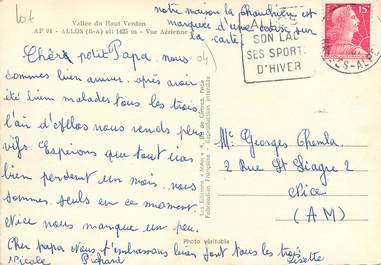 lot
Vallée du Haut Verdon
AP 94 - ALLOS (B-A) alt 1425 m - Vue Aérienne
notre maison la Chaudière est
marquée d'une croix sur
la carte.
15F
SON LAC
SES SPORTS
D'HIVER
Chèr petit Papa, nous
sommes bien arrivé, après avoir
été bien malades tous les trois
l'air d'Allos nous rends plus
vifs. Esperons que tout ira
bien pendent un mois, nous
sommes seuls en ce moment.
Nice nous manque un peu.
Cher papa nous t'embrassons bien fort tous les trois
Nicole Richard Lisette
Fabrication Française - Reproduction interdite
Mr Georges Chemla
3 Rue St Siagre 2
Nice
(AM)
Photo véritable